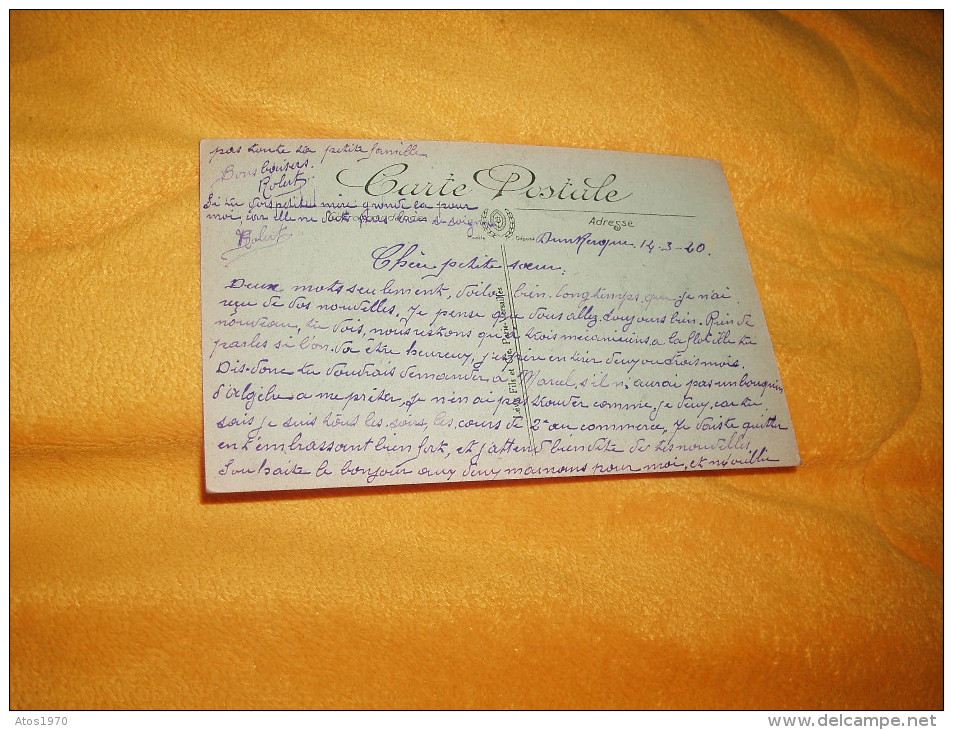 pas toute ta petite famille
Bons baisers.
Robert
Si tu vois petite mère gronde la pour
moi, car elle ne doit pas bien se soigner
Robert
Carte Postale
Adresse
Dunkerque 14-3-20.
Chère petite sœur,
Deux mots seulement, voilà bien longtemps que je n'ai
reçu de vos nouvelles. Je pense que vous allez toujours bien. Rien de
nouveau, tu vois, nous restons qu'à trois mécaniciens à la flotille tu
parles si l'on va être heureux, j'espère en tirer deux ou trois mois.
Dis-donc tu voudrais demander à Marcel, s'il n'aurai pas un bouquin
d'algèbre a me prêter, je n'en ai pas trouver comme je veux, car tu
sais je suis tous les soirs les cours de 2e au commerce, Je vais te quitter
en t'embrassant bien fort, et j'attend bien vite de tes nouvelles
Souhaite le bonjour aux deux mamans pour moi, et n'oublie
Lévy Fils et Cie, Paris Versailles
Atos1970
www.delcampe.net